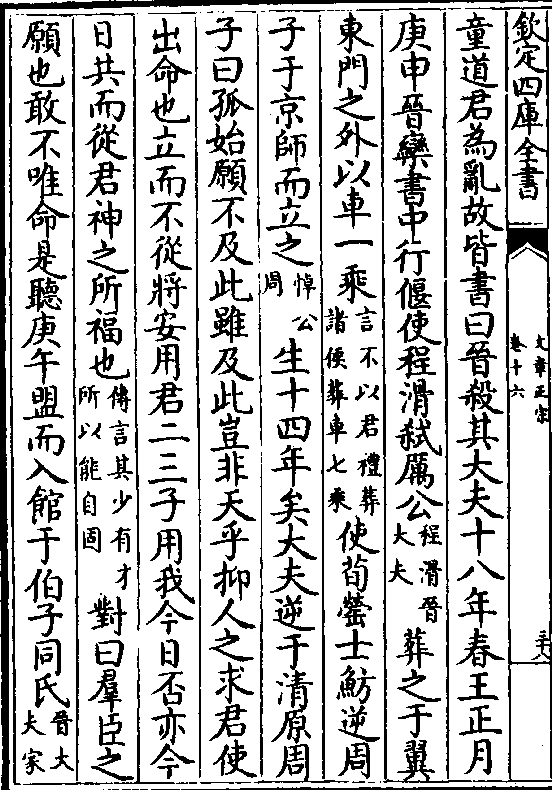 欽定四庫全書
文章正宗
卷十六
三十八
童道君為亂故皆書曰晉殺其大夫十八年春王正月
庚申晉欒書中行偃使程滑弑厲公程滑晉大夫葬之于翼
東門之外以車一乘言不以君禮葬諸侯葬車七乘使荀罃士魴逆周
子于京師而立之悼公周生十四年矣大夫逆于清原周
子曰孤始願不及此雖及此豈非天乎抑人之求君使
出命也立而不從將安用君二三子用我今日否亦今
日共而從君神之所福也傳言其少有才所以能自固對曰羣臣之
願也敢不唯命是聽庚午盟而入館于伯子同氏晉大夫家